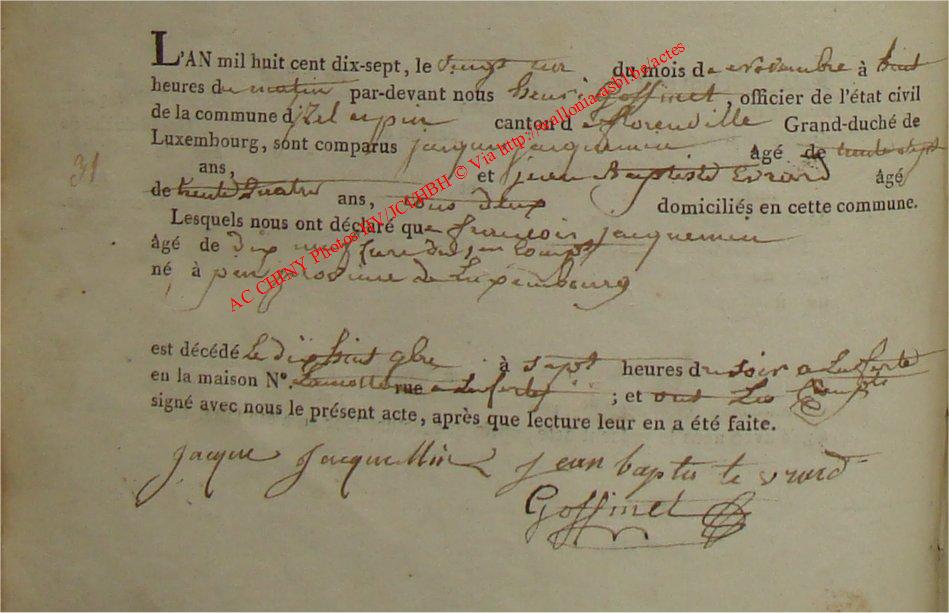 31
L'AN mil huit cent dix-sept, le vingt un du mois de novembre à huit
heures du matin par-devant nous henri Goffinet, officier de l'état civil
de la commune d'izel et pin canton de florenville Grand-duché de
Luxembourg, sont comparus jacque jacquemin âgé de trente sept
ans, et jean Baptiste Evrard âgé
de trente quatre ans, tous deux domiciliés en cette commune.
Lesquels nous ont déclaré que francois jacquemin
âgé de dix
né à pin province de Luxembourg
est décédé le dix huit 9bre à sept heures du soir a Laferté
en la maison N°. Lamotte rue a Laferté ; et ont Les
signé avec nous le présent acte, après que lecture leur en a été faite.
jacque jacquemin jean baptis te vrard
Goffinet
AC CHINY Photos HV/JCC/HBH © Via http://walloniacasbl.be/actes